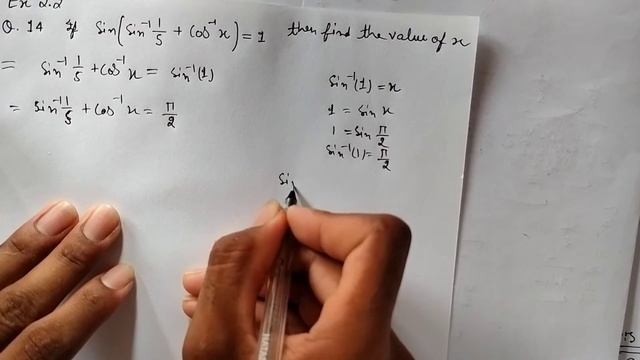 Ex 2.2
Q. 14 If sin(sin⁻¹ 1/5 + cos⁻¹ x) = 1 then find the value of x
= sin⁻¹ 1/5 + cos⁻¹ x = sin⁻¹(1)
= sin⁻¹ 1/5 + cos⁻¹ x = π/2
sin⁻¹(1) = x
1 = sin x
1 = sin π/2
sin⁻¹(1) = π/2
Si